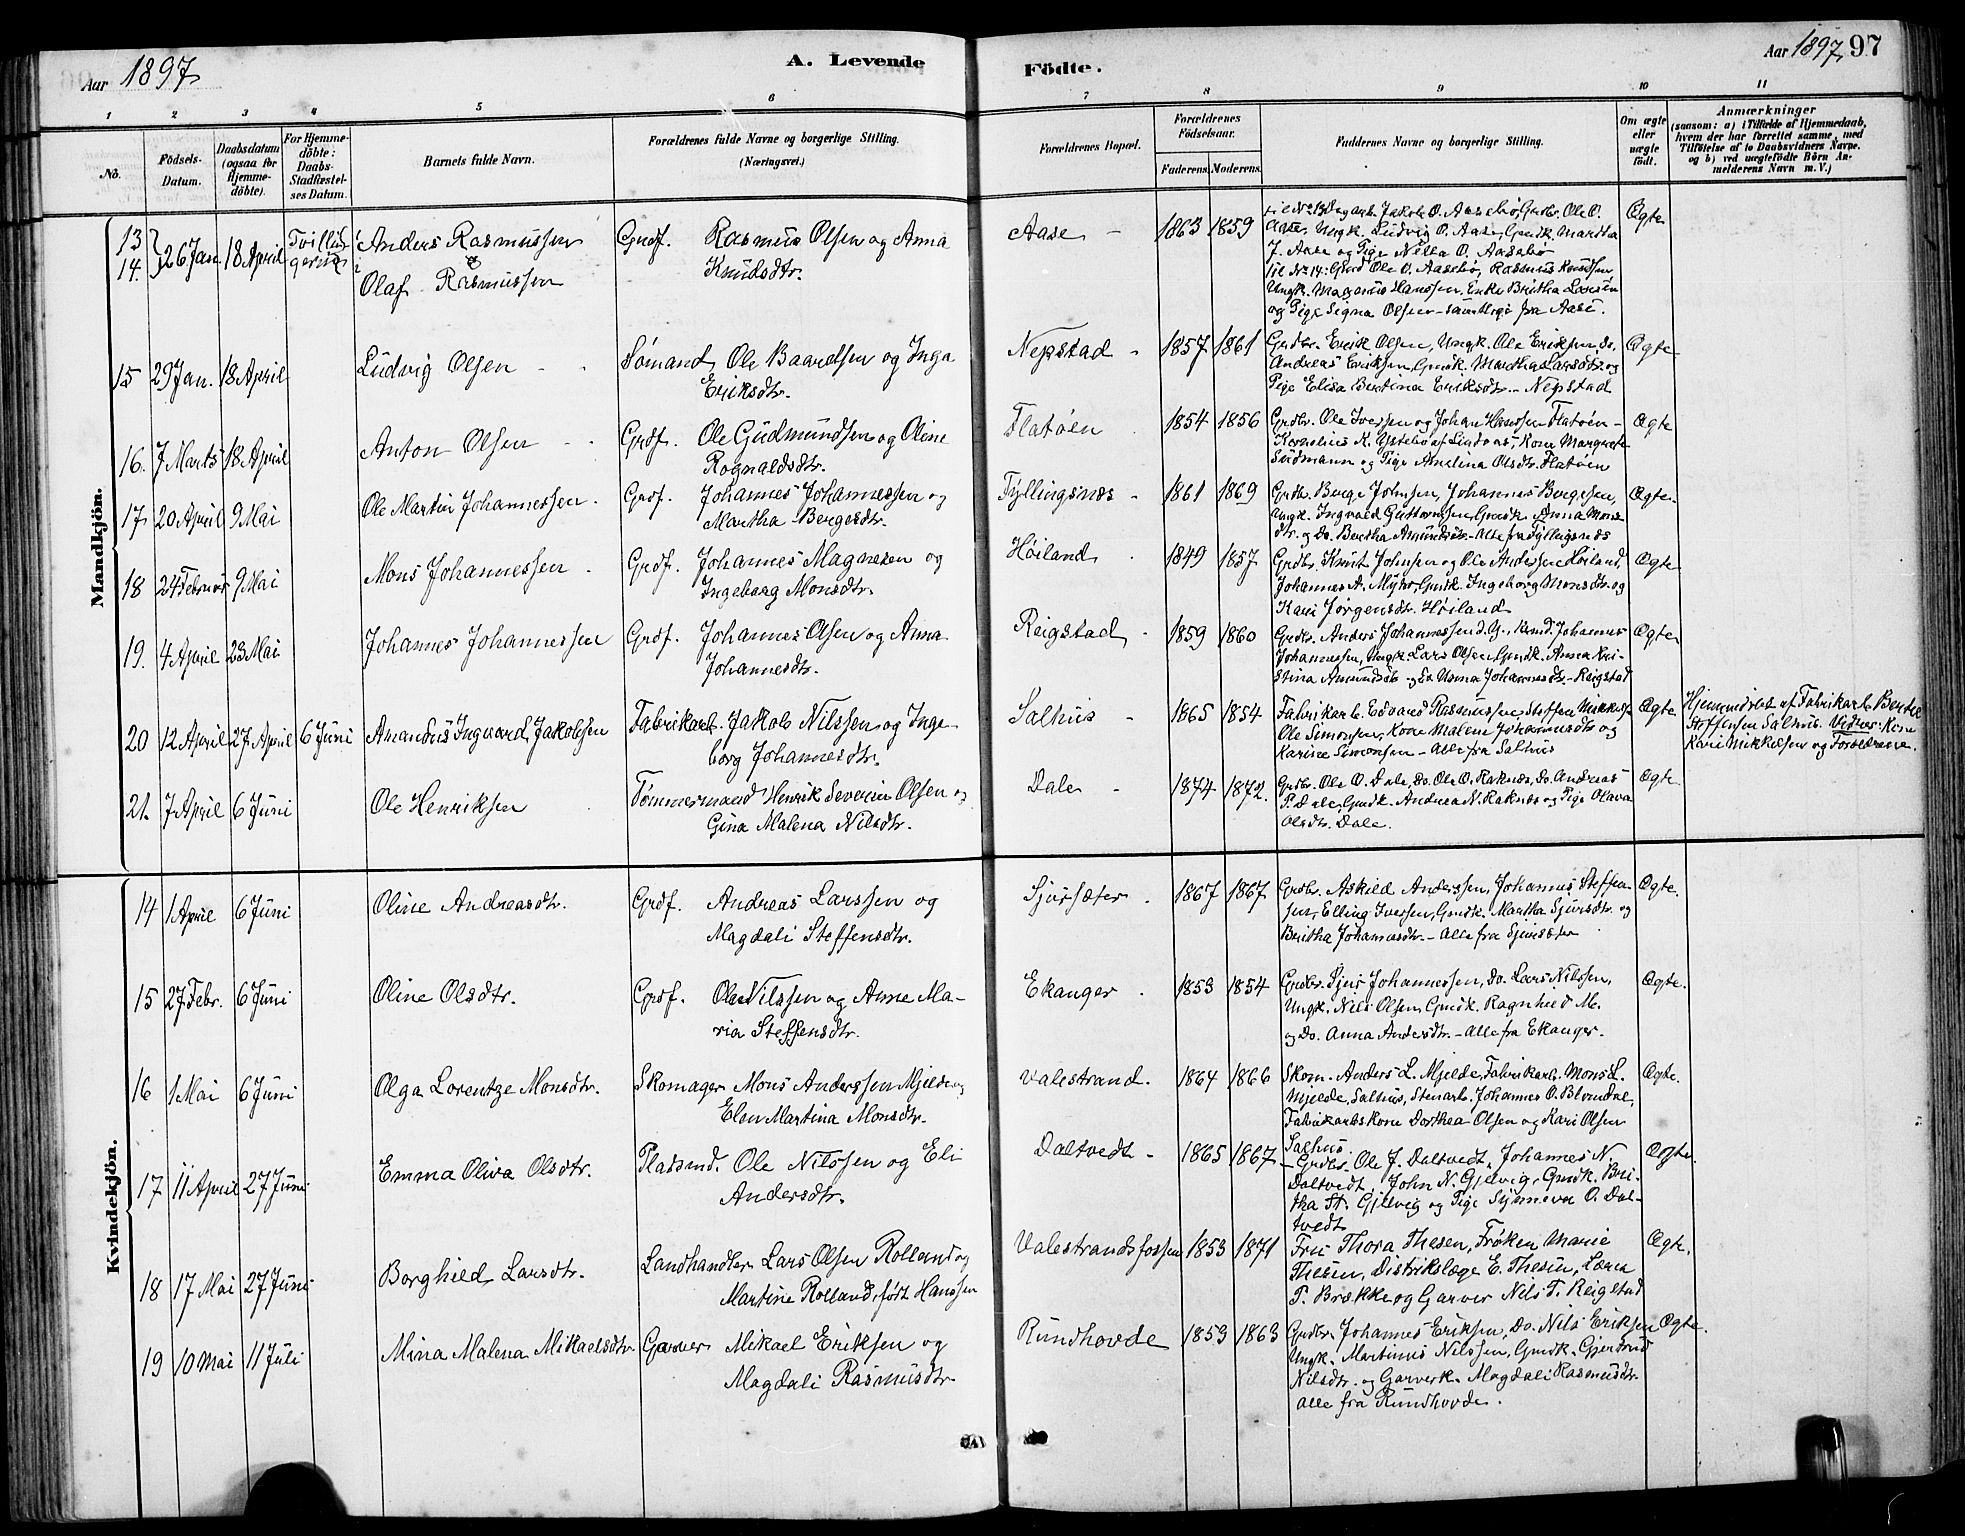 Aar 1897
A. Levende
Födte.
Aar 1897
97
1 2 3 4 5 6 7 8 9 10 11
No.
Födsels-
Datum.
Daabsdatum
(ogsaa for
Hjemme-
döbte).
For Hjemme-
döbte:
Daabs-
Stadfæstel-
ses Datum.
Barnets fulde Navn.
Forældrenes fulde Navne og borgerlige Stilling.
(Næringsvei.)
Forældrenes Bopæl.
Forældrenes
Födselsaar.
Faderens. Moderens.
Faddernes Navne og borgerlige Stilling.
Om ægte
eller
uægte
født.
Anmærkninger
(saasom: a) i Tilfælde af Hjemmedaab,
hvem der har forrettet samme, med
Tilföielse af to Daabsvidners Navne.
og b) ved uægtefödte Börn An-
melderens Navn m. V.)
Mandkjön.
13
14. 26 Jan. 18 April Tvillin-
ger
Anders Rasmussen
Olaf Rasmussen
Grdf. Rasmus Olsen og Anna
Knudsdtr.
Aase - 1863 1859
til No 13 Jakob O. Aasebø, Grdbr. Ole O.
Aase, Ungk. Ludvig O. Aase, Gmdk. Martha
J. Aase og Pige Nilla O. Aasebø
til No 14: Ole O. Aasebø, Rasmus Knudsen,
Ungk. Magnus Hanssen, Enke Britha Larsen
og Pige Signa Olsen - samtlige fra Aase.
Ægte
15 29 Jan. 18 April Ludvig Olsen
Sømand Ole Baardsen og Inga
Eriksdtr.
Nepstad - 1857 1861
Grdbr. Erik Olsen, Ungk. Ole Eriksen, Do.
Andreas Eriksen, Gmdk. Martha Larsdtr. og
Pige Elisa Bertina Eriksdtr. - Nepstad
Ægte
16. 7 Marts 18 April Anton Olsen
Grdf. Ole Gudmundsen og Oline
Rognaldsdtr.
Flatøen 1854 1856
Grdbr. Ole Iversen og Johan Hanssen Flatøen -
Kornelius K. Ystebø af Lindaas - Kone Margrete
Sudmann og Pige Amelina Olsdtr. Flatøen
Ægte
17 20 April 9 Mai Ole Martin Johannessen
Grdf. Johannes Johannessen og
Martha Bergesdtr.
Fyllingsnes - 1861 1869
Grdbr. Berge Johnsen, Johannes Bergesen,
Ungk. Ingvald Guttormsen, Gmdk. Anna Mons-
dtr. og Do. Bertha Amundsdtr. - Alle fra Fyllingsnes
Ægte
18 24 Februar 9 Mai Mons Johannessen
Grdf. Johannes Magnesen og
Ingeborg Monsdtr.
Høiland 1849 1857
Grdbr. Knut Johnsen og Ole Andersen Høiland,
Johannes A. Myhr, Gmdk. Ingeborg Monsdtr. og
Kari Jørgensdtr. Høiland
Ægte
19. 4 April 23 Mai Johannes Johannessen
Grdf. Johannes Olsen og Anna
Johannesdtr.
Reigstad 1859 1860
Grdbr. Anders Johannessen d.y., Johannes
Johannessen, Ungk. Lars Olsen, Gmdk. Anna Kri-
stina Amundsdtr. og Do. Johannesdtr. - Reigstad
Ægte
20 12 April 27 April 6 Juni Amandus Ingvard Jakobsen
Fabrikarb. Jakob Nilssen og Inge-
borg Johannesdtr.
Salhus - 1865 1854
Fabrikarb. Edvard Rasmussen, Steffen Mikkelsen
Ole Simonsen, Kone Malene Johannesdtr. og
Karine Simonsen - Alle fra Salhus
Ægte
Hjemmedøbt af Fabrikarb. Bertel
Steffensen Salhus. Vidner: Kone
Kari Mikkelsen og Forældrene.
21. 7 April 6 Juni Ole Henriksen
Tømmermand Henrik Severin Olsen og
Gina Malena Nilsdtr.
Dale - 1874 1872.
Grdbr. Ole O. Dale, Do. Ole O. Raknes, Do. Andreas
P. Dale, Gmdk. Andrea N. Raknes og Pige Olava
Olsdtr. Dale.
Ægte
Kvindekjön.
14 1 April 6 Juni Oline Andreasdtr.
Grdf. Andreas Larssen og
Magdali Steffensdtr.
Sjursæter 1867 1867
Grdbr. Askild Anderssen, Johannes Steffen-
sen, Elling Iversen, Gmdk. Martha Sjursdtr. og
Britha Johannesdtr. - Alle fra Sjursæter
Ægte.
15 27 Febr. 6 Juni Oline Olsdtr.
Grdf. Ole Nilssen og Anne Ma-
ria Steffensdtr.
Ekanger 1853 1854
Grdbr. Sjur Johannessen, Do. Lars Nilssen,
Ungk. Nils Olsen, Gmdk. Ragnhild M.
og Do. Anna Andersdtr. - Alle fra Ekanger.
Ægte.
16 1 Mai 6 Juni Olga Lorentze Monsdtr.
Skomager Mons Anderssen Mjelde og
Elen Martina Monsdtr.
Valestrand. 1864 1866
Skom. Anders L. Mjelde, Fabrikarb. Mons L.
Mjelde, Salhus, Stenarb. Johannes O. Blomdal,
Fabrikarbskone Dorthea Olsen og Kari Olsen
Salhus.
Ægte.
17 11 April 27 Juni Emma Oliva Olsdtr.
Pladsmd. Ole Nilssen og Eli
Andersdtr.
Daltvedt - 1865 1867
Grdbr. Ole J. Daltvedt, Johannes N.
Daltvedt, John N. Gjelvig, Gmdk. Bri-
tha St. Gjelvig og Pige Synneva O. Dal-
tvedt
Ægte.
18 17 Mai 27 Juni Borghild Larsdtr.
Landhandler Lars Olsen Rolland og
Martine Rolland, født Hanssen
Valestrandsfossen 1853 1871
Fru Thora Thesen, Frøken Marie
Thesen, Distriktslæge E. Thesen, Lærer
P. Brække og Garver Nils T. Reigstad
Ægte.
19 10 Mai 11 Juli Mina Malena Mikaelsdtr.
Garver Mikael Eriksen og
Magdali Rasmusdtr.
Rundhovde 1853 1863
Grdbr. Johannes Eriksen, Do. Nils Eriksen
Ungk. Martinus Nilssen, Gmdk. Gjertrud
Nilsdtr. og Garverk. Magdali Rasmusdtr.
Alle fra Rundhovde.
Ægte.